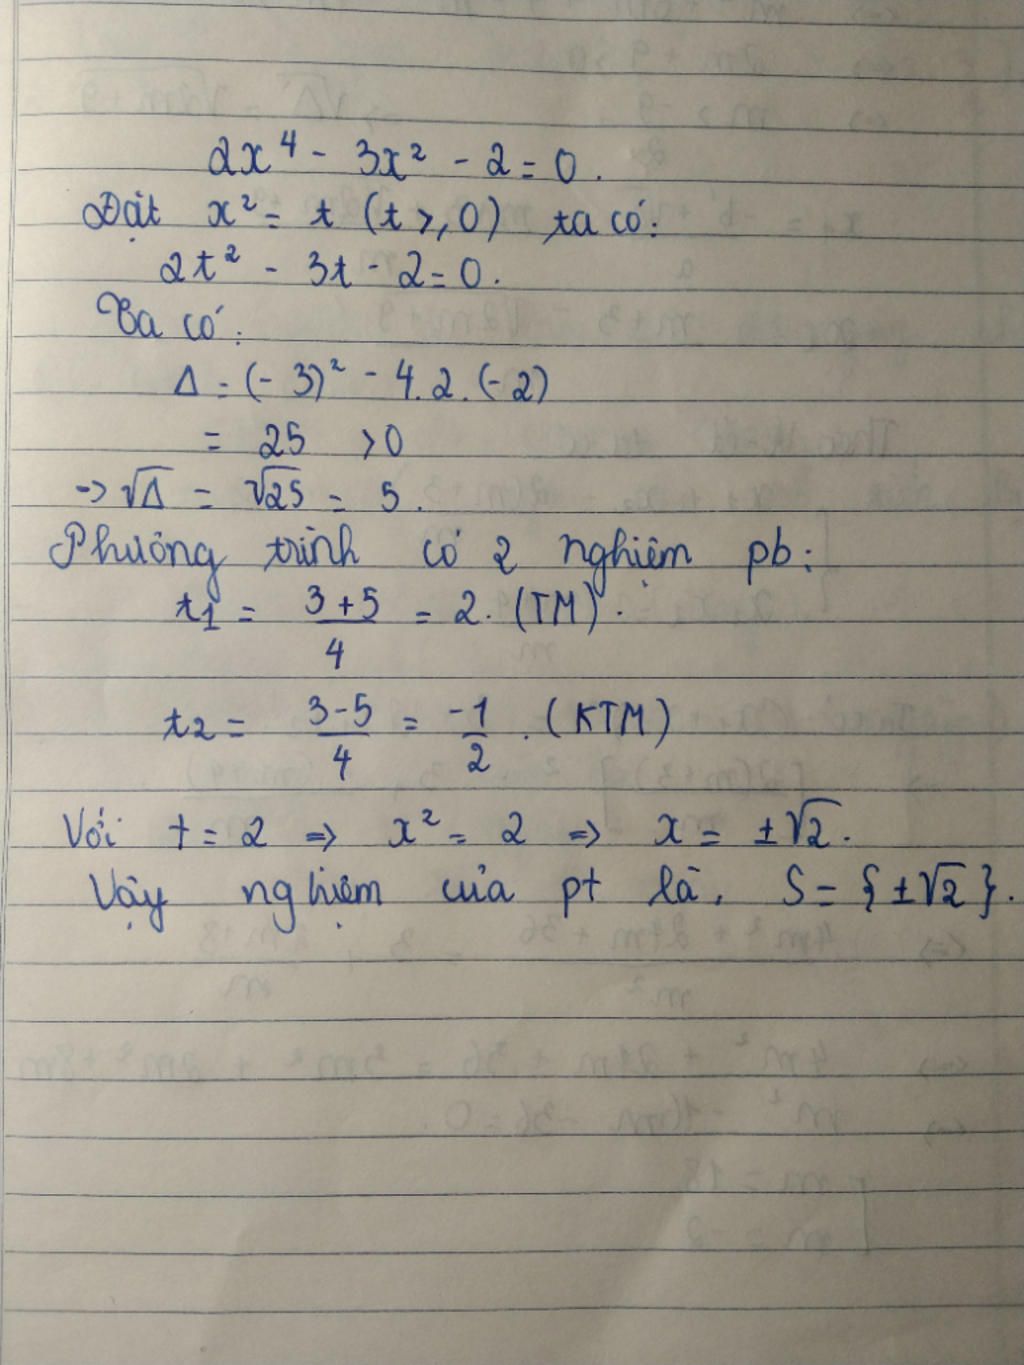 2x⁴ - 3x² - 2 = 0.
Đặt x² = t (t ≥ 0) ta có:
2t² - 3t - 2 = 0.
Ta có:
Δ = (-3)² - 4.2.(-2)
= 25 > 0
-> √Δ = √25 = 5.
Phương trình có 2 nghiệm pb:
t1 = (3+5)/4 = 2. (TM).
t2 = (3-5)/4 = -1/2. (KTM)
Với t = 2 => x² = 2 => x = ±√2.
Vậy nghiệm của pt là. S = {±√2}.